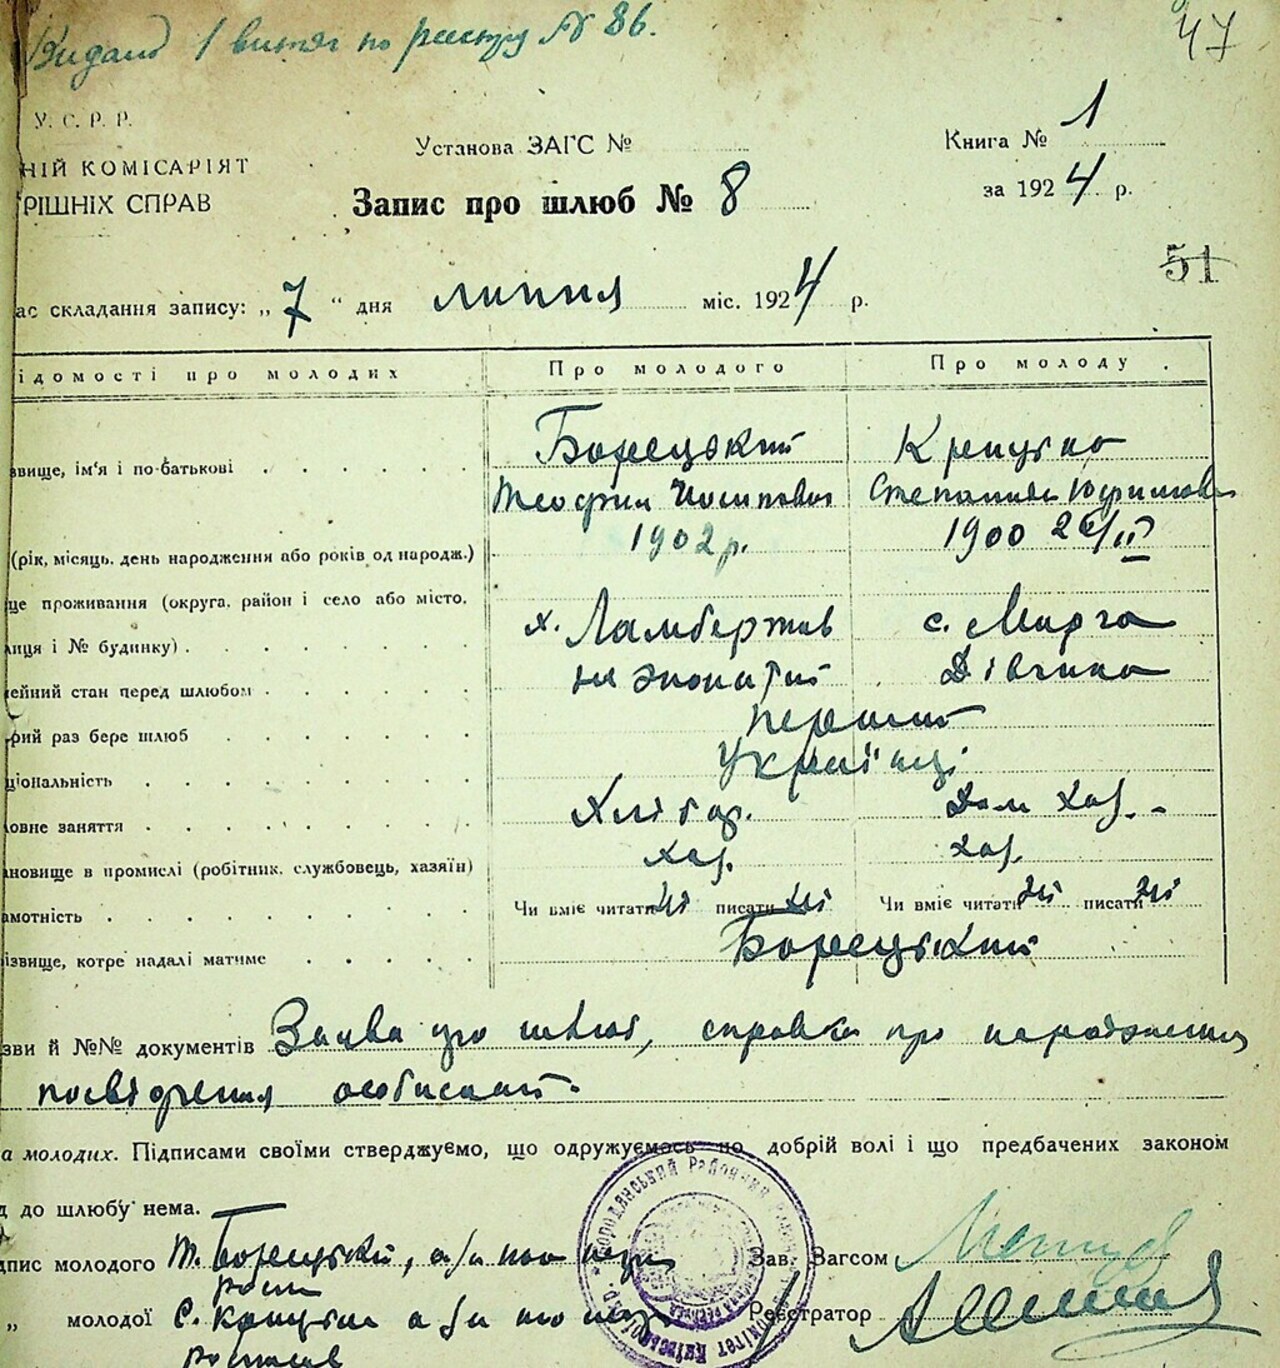 Видано 1 витяг по реєстру № 86.
47
У. С. Р. Р.
НІЙ КОМІСАРІЯТ
РІШНІХ СПРАВ
Установа ЗАГС №
Книга № 1
за 1924 р.
Запис про шлюб № 8
51
ас складання запису: „7“ дня липня міс. 1924 р.
ідомості про молодих Про молодого Про молоду
звище, ім'я і по-батькові Борецький
Теофил Йосипович Степанида
(рік, місяць, день народження або років од народж.) 1902 р. 1900 26/II
це проживання (округа, район і село або місто,
лиця і № будинку) х. с.
ейний стан перед шлюбом не жонатий Дівчина
рий раз бере шлюб перший
ціональність Українці
овне заняття Хлібор. Дом. Хаз.
ановище в промислі (робітник, службовець, хазяїн) хаз. хаз.
амотність Чи вміє читати ні писати ні Чи вміє читати ні писати ні
різвище, котре надалі матиме Борецький
зви й №№ документів Заява про шлюб, справка про народження
посвідчення особистий
а молодих. Підписами своїми стверджуємо, що одружуємось по добрій волі і що предбачених законом
д до шлюбу нема.
дпис молодого Т. Борецький, а за
Зав. Загсом
„ молодої С.
Реєстратор